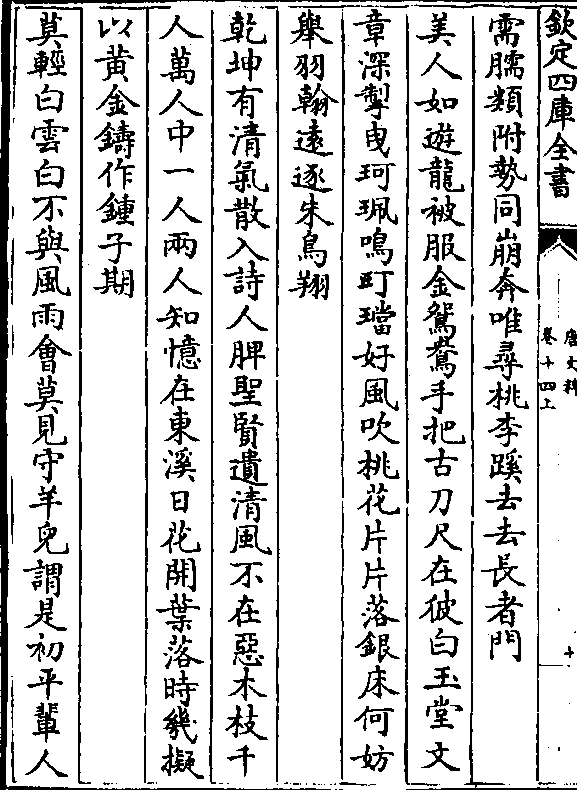 欽定四庫全書
唐文粹
卷十四上
十
需臑類附勢同崩奔唯尋桃李蹊去去長者門
美人如遊龍被服金鴛鴦手把古刀尺在彼白玉堂文
章深掣曳珂珮鳴玎璫好風吹桃花片片落銀床何妨
舉羽翰遠逐朱鳥翔
乾坤有清氣散入詩人脾聖賢遺清風不在惡木枝千
人萬人中一人兩人知憶在東溪日花開葉落時幾擬
以黃金鑄作鍾子期
莫輕白雲白不與風雨會莫見守羊兒謂是初平輩人